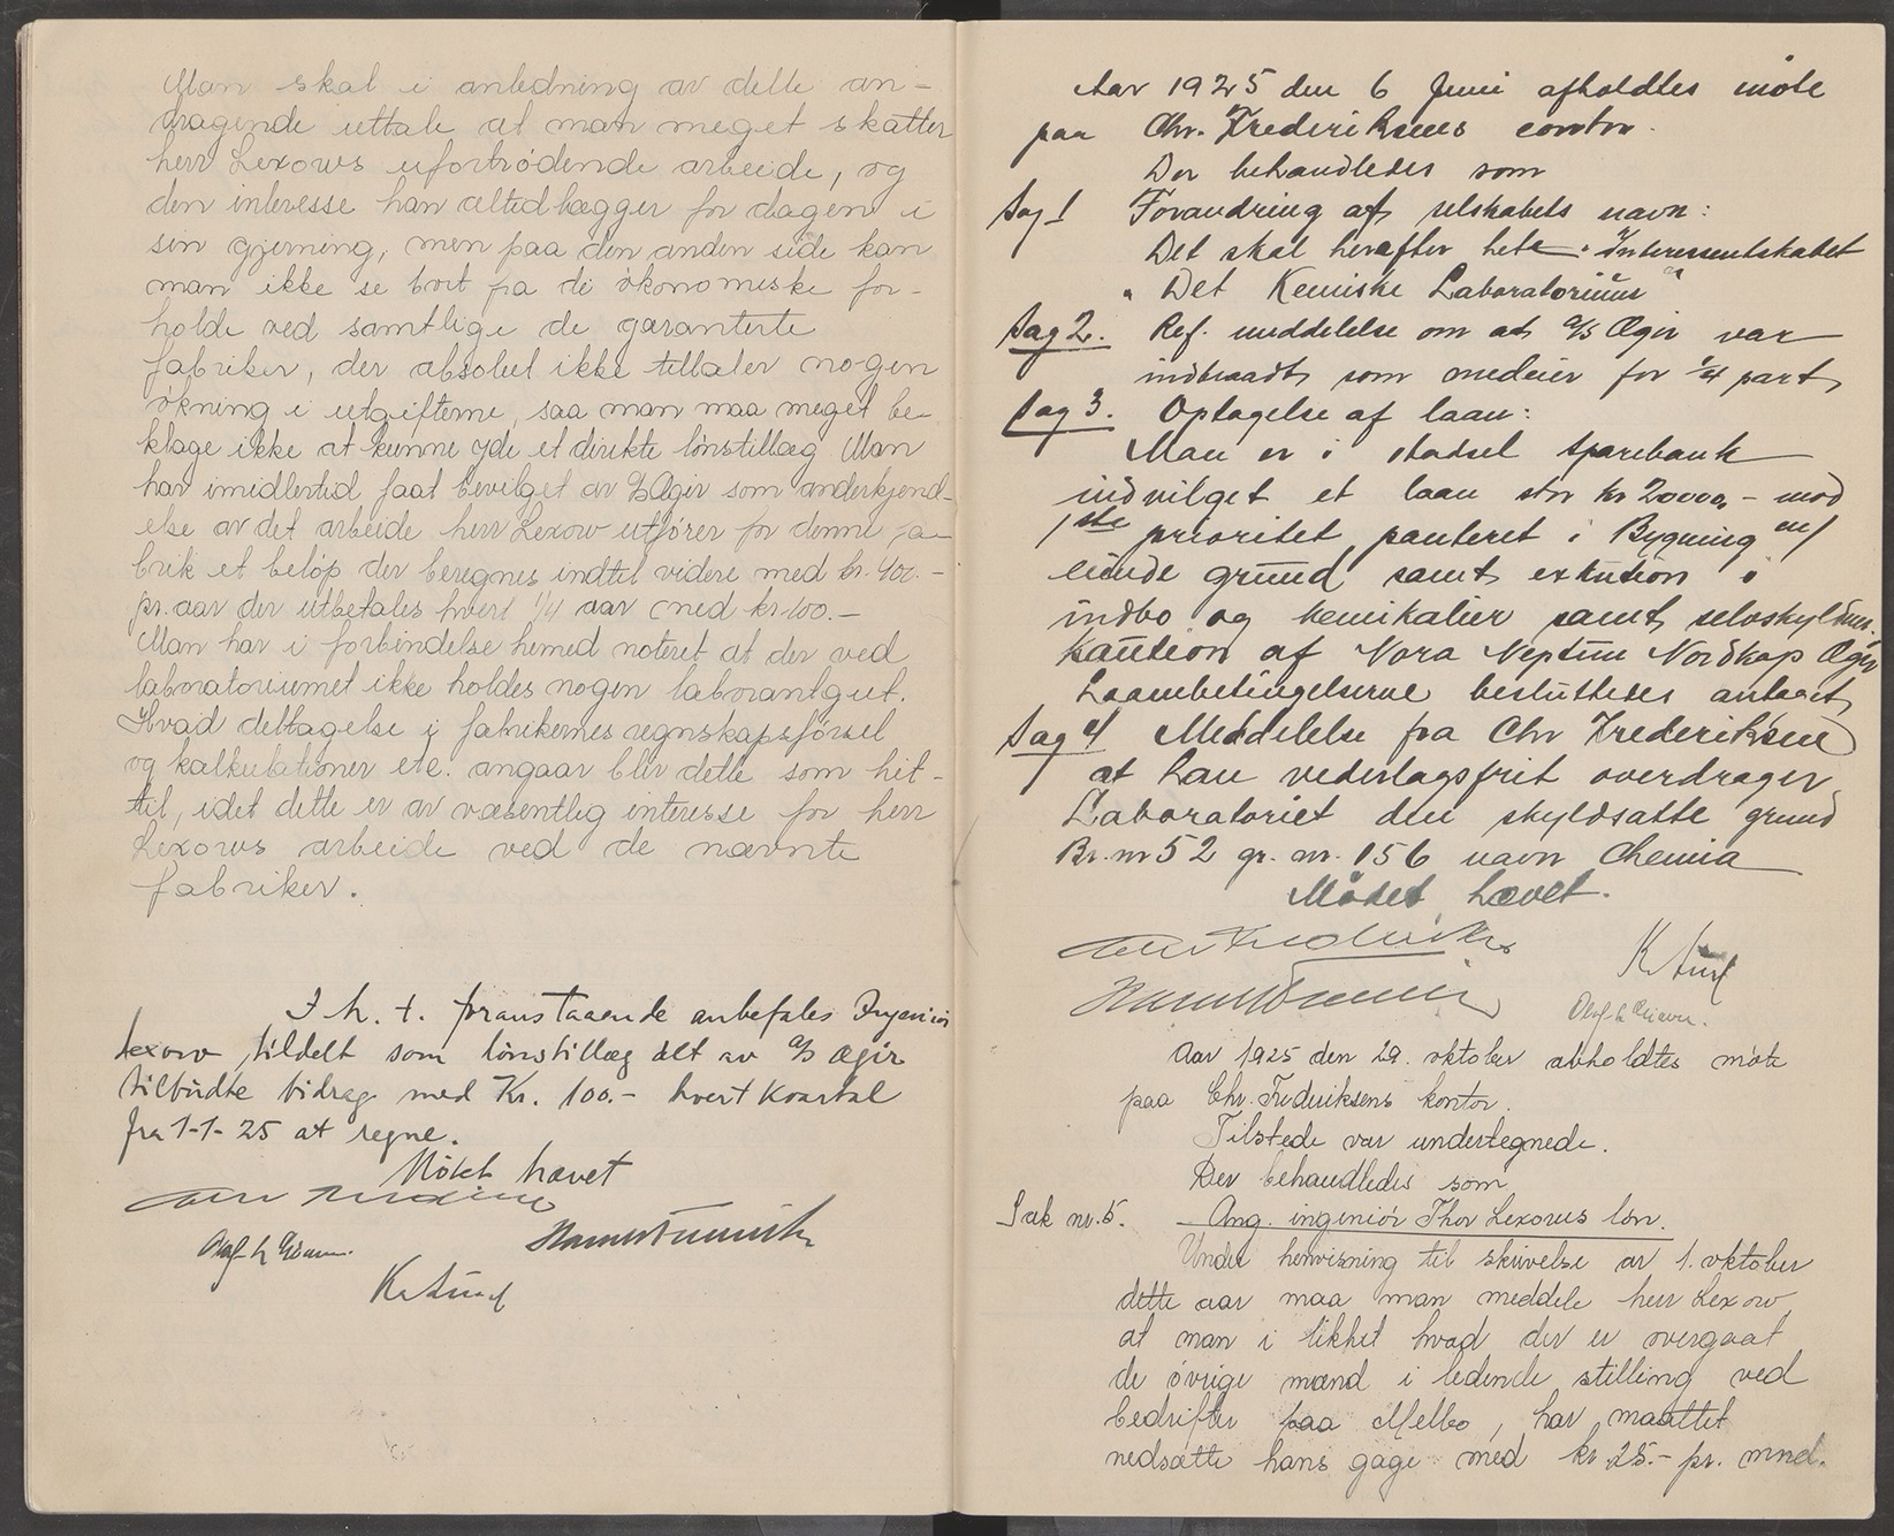 Man skal i anledning av dette an-
dragende uttale at man meget skatter
herr Lexows ufortrødende arbeide, og
den interesse han altid lægger for dagen i
sin gjerning, men paa den anden side kan
man ikke se bort fra de økonomiske for-
holde ved samtlige de garanterte
fabriker, der absolut ikke tillater nogen
økning i utgifterne, saa man maa meget be-
klage ikke at kunne yde et direkte lønstillæg. Man
har imidlertid faat bevilget av A/S Ægir som anderkjend-
else av det arbeide herr Lexow utfører for denne fa-
brik et beløp der beregnes indtil videre med kr. 400.-
pr. aar der utbetales hvert 1/4 aar med kr. 100.-
Man har i forbindelse hermed noteret at der ved
laboratoriumet ikke holdes nogen laborantgut.
Hvad deltagelse i fabrikernes regnskapsførsel
og kalkulationer etc. angaar blir dette som hit-
til, idet dette er av væsentlig interesse for herr
Lexows arbeide ved de nævnte
fabriker.
I h. t. foranstaaende anbefales Ingeniør
Lexow tildelt som lønstillæg det av A/S Ægir
tilbudte bidrag med Kr. 100.- hvert Kvartal
fra 1-1-25 at regne.
Møtet hævet
Aar 1925 den 6 Juni afholdtes møte
paa Chr. Frederiksens contor.
Der behandledes som
Sag 1 Forandring af selskabets navn:
Det skal herefter hete "Interessentskabet
"Det Kemiske Laboratorium"
Sag 2. Ref. meddelelse om at A/S Ægir var
indtraadt som medeier for 1/4 part
Sag 3. Optagelse af laan:
Man er i Hadsel Sparebank
indvilget et laan stor kr 20000,- mod
1ste prioritet panteret i Bygning m/
eiende grund samt extution i
indbo og kemikalier samt selvskyldner-
kaution af Nora Neptun Nordkap Ægir
Laanebetingelserne besluttedes antaget
Sag 4 Meddelelse fra Chr Frederiksen
at han vederlagsfrit overdrager
Laboratoriet den skyldsatte grund
Br. nr 52 gr. nr. 156 navn Chemia
Mødet hævet.
Aar 1925 den 29. oktober avholdtes møte
paa Chr. Frederiksens kontor.
Tilstede var undertegnede.
Der behandledes som
Sak nr. 5. Ang. ingeniør Thor Lexows løn.
Under henvisning til skrivelse av 1. oktober
dette aar maa man meddele herr Lexow,
at man i likhet hvad der er overgaat
de øvrige mænd i ledende stilling ved
bedrifter paa Melbo, har maattet
nedsætte hans gage med kr 25.- pr. mnd.